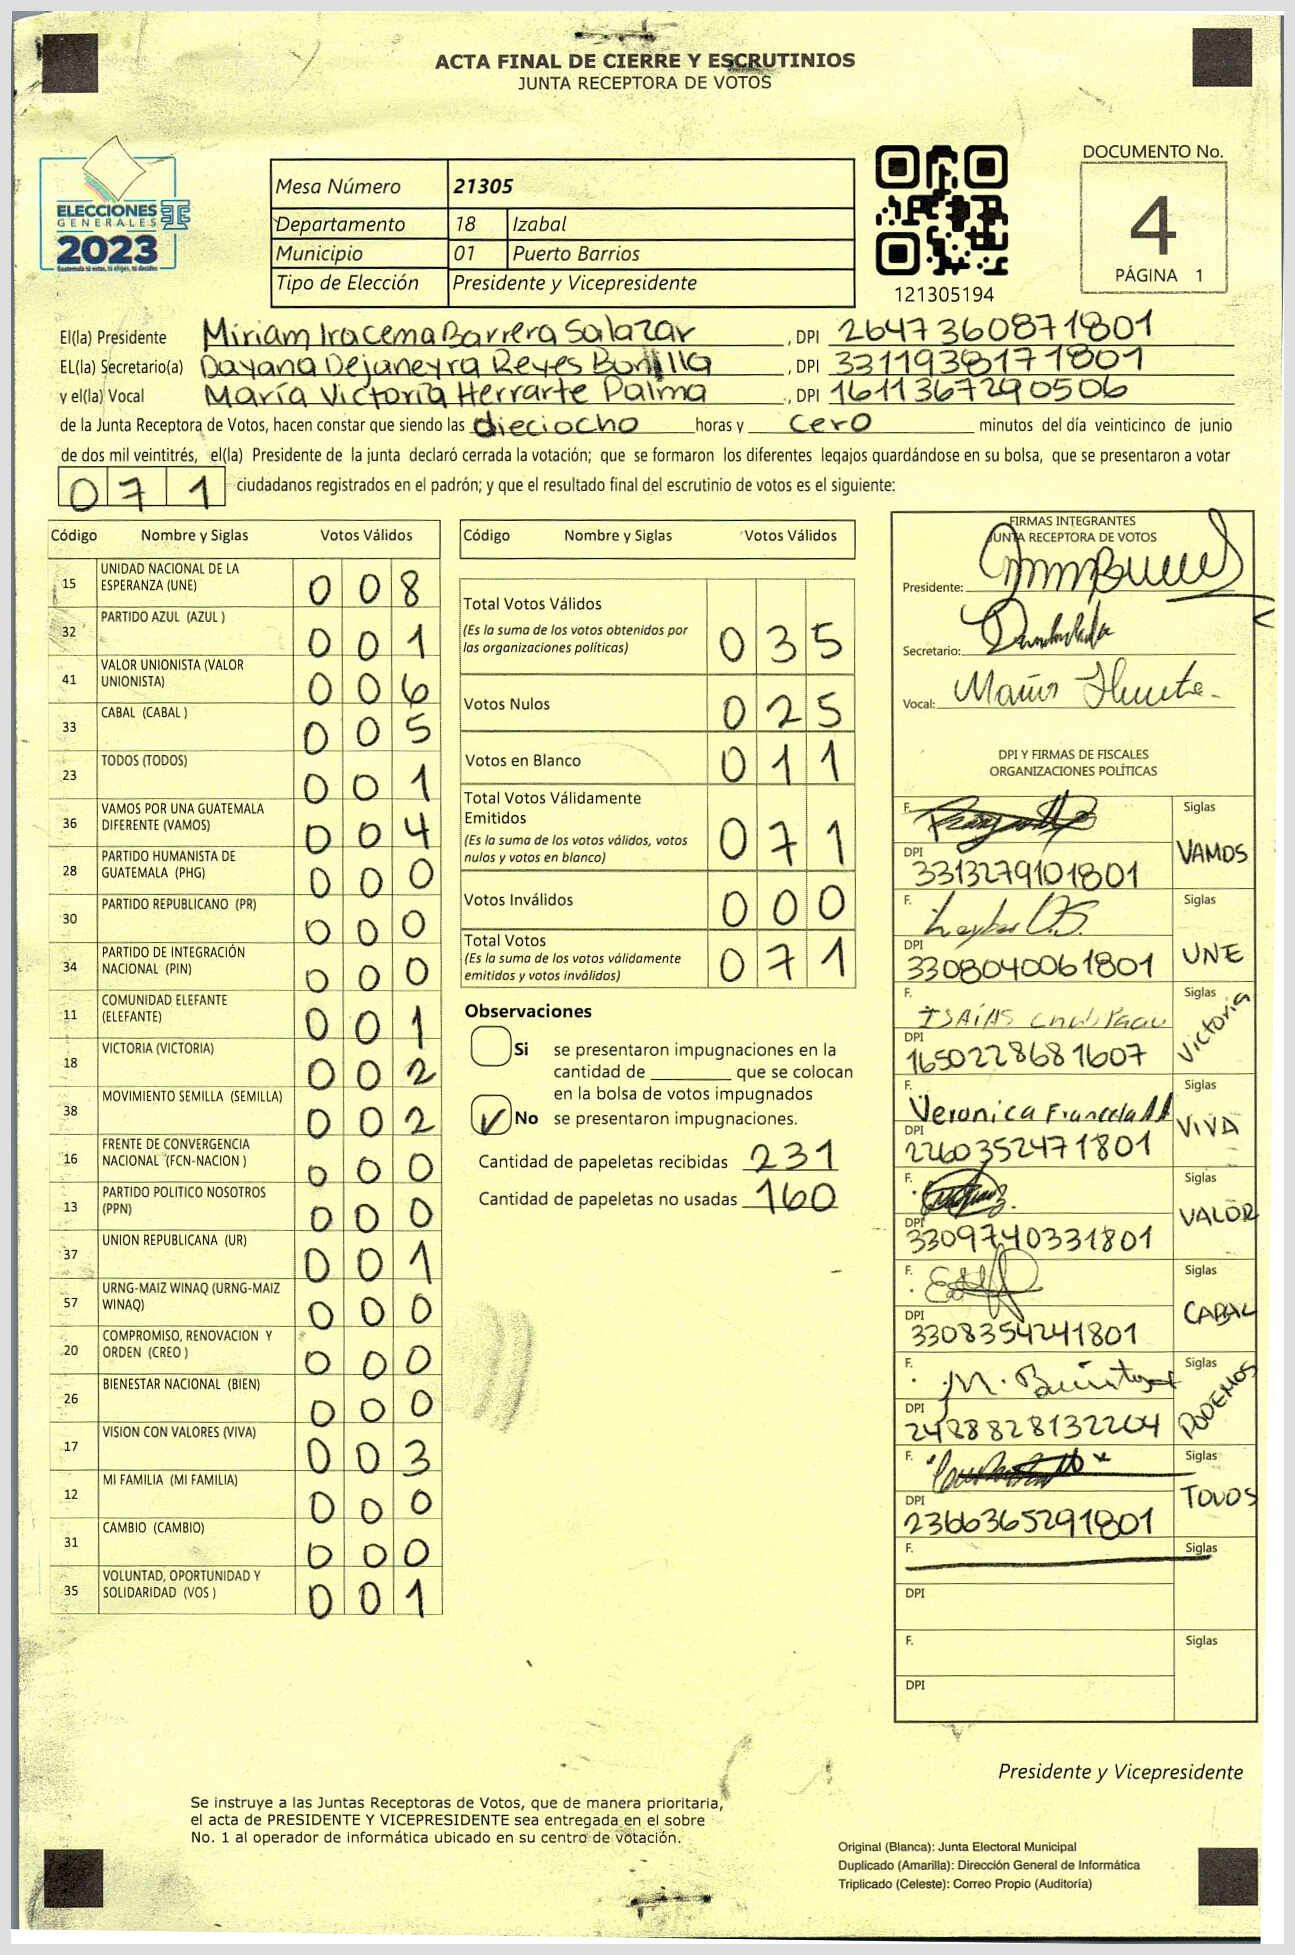 ACTA FINAL DE CIERRE Y ESCRUTINIOS
JUNTA RECEPTORA DE VOTOS
ELECCIONES
GENERALES
2023
Guatemala tú estás, tú eliges, tú decides
Mesa Número 21305
Departamento 18 Izabal
Municipio 01 Puerto Barrios
Tipo de Elección Presidente y Vicepresidente
121305194
DOCUMENTO No.
4
PÁGINA 1
El(la) Presidente Miriam Iracema Barrera Salazar, DPI 2647360871801
EL(la) Secretario(a) Dayana Dejaneyra Reyes Bonilla, DPI 3311938171801
y el(la) Vocal María Victoria Herrarte Palma, DPI 1611367290506
de la Junta Receptora de Votos, hacen constar que siendo las dieciocho horas y cero minutos del día veinticinco de junio
de dos mil veintitrés, el(la) Presidente de la junta declaró cerrada la votación; que se formaron los diferentes legajos guardándose en su bolsa, que se presentaron a votar
071 ciudadanos registrados en el padrón; y que el resultado final del escrutinio de votos es el siguiente:
Código Nombre y Siglas Votos Válidos
15 UNIDAD NACIONAL DE LA ESPERANZA (UNE) 008
32 PARTIDO AZUL (AZUL ) 001
41 VALOR UNIONISTA (VALOR UNIONISTA) 006
33 CABAL (CABAL ) 005
23 TODOS (TODOS) 001
36 VAMOS POR UNA GUATEMALA DIFERENTE (VAMOS) 004
28 PARTIDO HUMANISTA DE GUATEMALA (PHG) 000
30 PARTIDO REPUBLICANO (PR) 000
34 PARTIDO DE INTEGRACIÓN NACIONAL (PIN) 000
11 COMUNIDAD ELEFANTE (ELEFANTE) 001
18 VICTORIA (VICTORIA) 002
38 MOVIMIENTO SEMILLA (SEMILLA) 002
16 FRENTE DE CONVERGENCIA NACIONAL (FCN-NACION ) 000
13 PARTIDO POLITICO NOSOTROS (PPN) 000
37 UNION REPUBLICANA (UR) 001
57 URNG-MAIZ WINAQ (URNG-MAIZ WINAQ) 000
20 COMPROMISO, RENOVACION Y ORDEN (CREO ) 000
26 BIENESTAR NACIONAL (BIEN) 000
17 VISION CON VALORES (VIVA) 003
12 MI FAMILIA (MI FAMILIA) 000
31 CAMBIO (CAMBIO) 000
35 VOLUNTAD, OPORTUNIDAD Y SOLIDARIDAD (VOS ) 001
Código Nombre y Siglas Votos Válidos
Total Votos Válidos 035
(Es la suma de los votos obtenidos por
las organizaciones políticas)
Votos Nulos 025
Votos en Blanco 011
Total Votos Válidamente
Emitidos 071
(Es la suma de los votos válidos, votos
nulos y votos en blanco)
Votos Inválidos 000
Total Votos 071
(Es la suma de los votos válidamente
emitidos y votos inválidos)
Observaciones
Si se presentaron impugnaciones en la
cantidad de ________ que se colocan
en la bolsa de votos impugnados
No se presentaron impugnaciones.
Cantidad de papeletas recibidas 231
Cantidad de papeletas no usadas 160
FIRMAS INTEGRANTES
JUNTA RECEPTORA DE VOTOS
Presidente:
Secretario:
Vocal:
DPI Y FIRMAS DE FISCALES
ORGANIZACIONES POLÍTICAS
F. Siglas VAMOS
DPI 3313279101801
F. Siglas UNE
DPI 3308040061801
F. ISAÍAS Siglas Victoria
DPI 1650228681607
F. Veronica Siglas VIVA
DPI 2260352471801
F. Siglas VALOR
DPI 3309740331801
F. Siglas CABAL
DPI 3308354241801
F. Siglas PODEMOS
DPI 2428828132204
F. Siglas TODOS
DPI 2366365291801
F. Siglas
DPI
F. Siglas
DPI
Presidente y Vicepresidente
Se instruye a las Juntas Receptoras de Votos, que de manera prioritaria,
el acta de PRESIDENTE Y VICEPRESIDENTE sea entregada en el sobre
No. 1 al operador de informática ubicado en su centro de votación.
Original (Blanca): Junta Electoral Municipal
Duplicado (Amarilla): Dirección General de Informática
Triplicado (Celeste): Correo Propio (Auditoría)